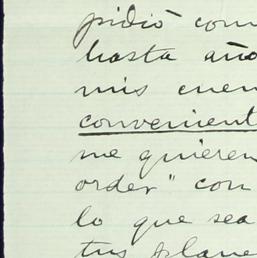 pidió com
hasta año
mis cuen
convenient
me quieren
order" con
lo que sea
tus plane